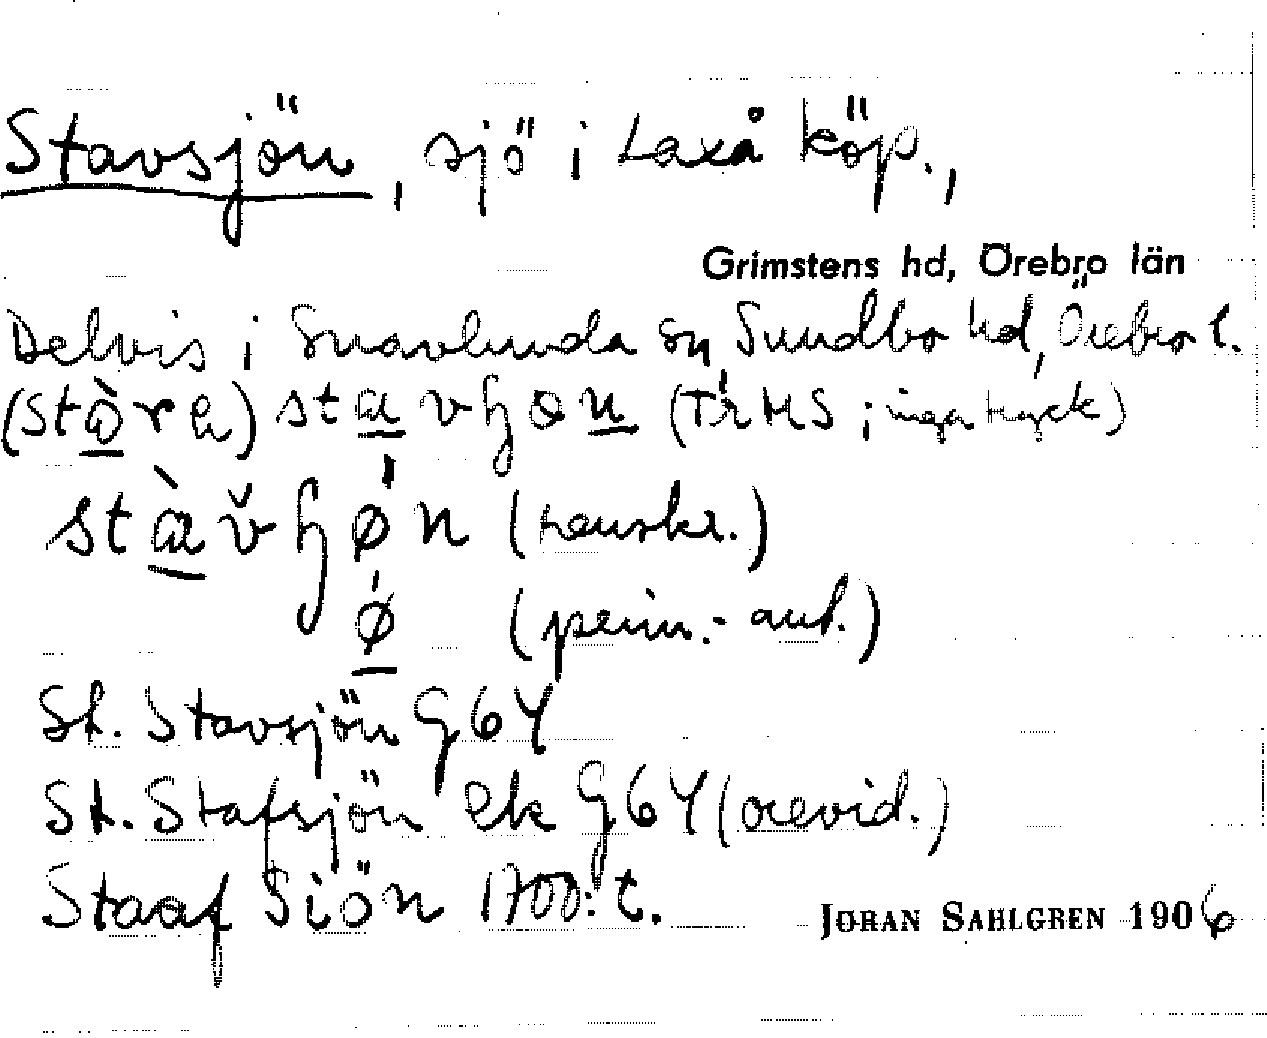 Stavsjön, sjö i Laxå köp.,
Grimstens hd, Örebro län
Delvis i Snavlunda sn, Sundbo hd, Örebro l.
(stò̱ra) sta̱vɧøṉ (TrHS; inga tryck)
stà̱v̌ɧǿn (transkr.)
ǿ̱ (prim.-aut.)
St. Stavsjön G64
St. Stafsjön ek G64 (orevid.)
Staaf Siön 1700:t.
JÖRAN SAHLGREN 1906